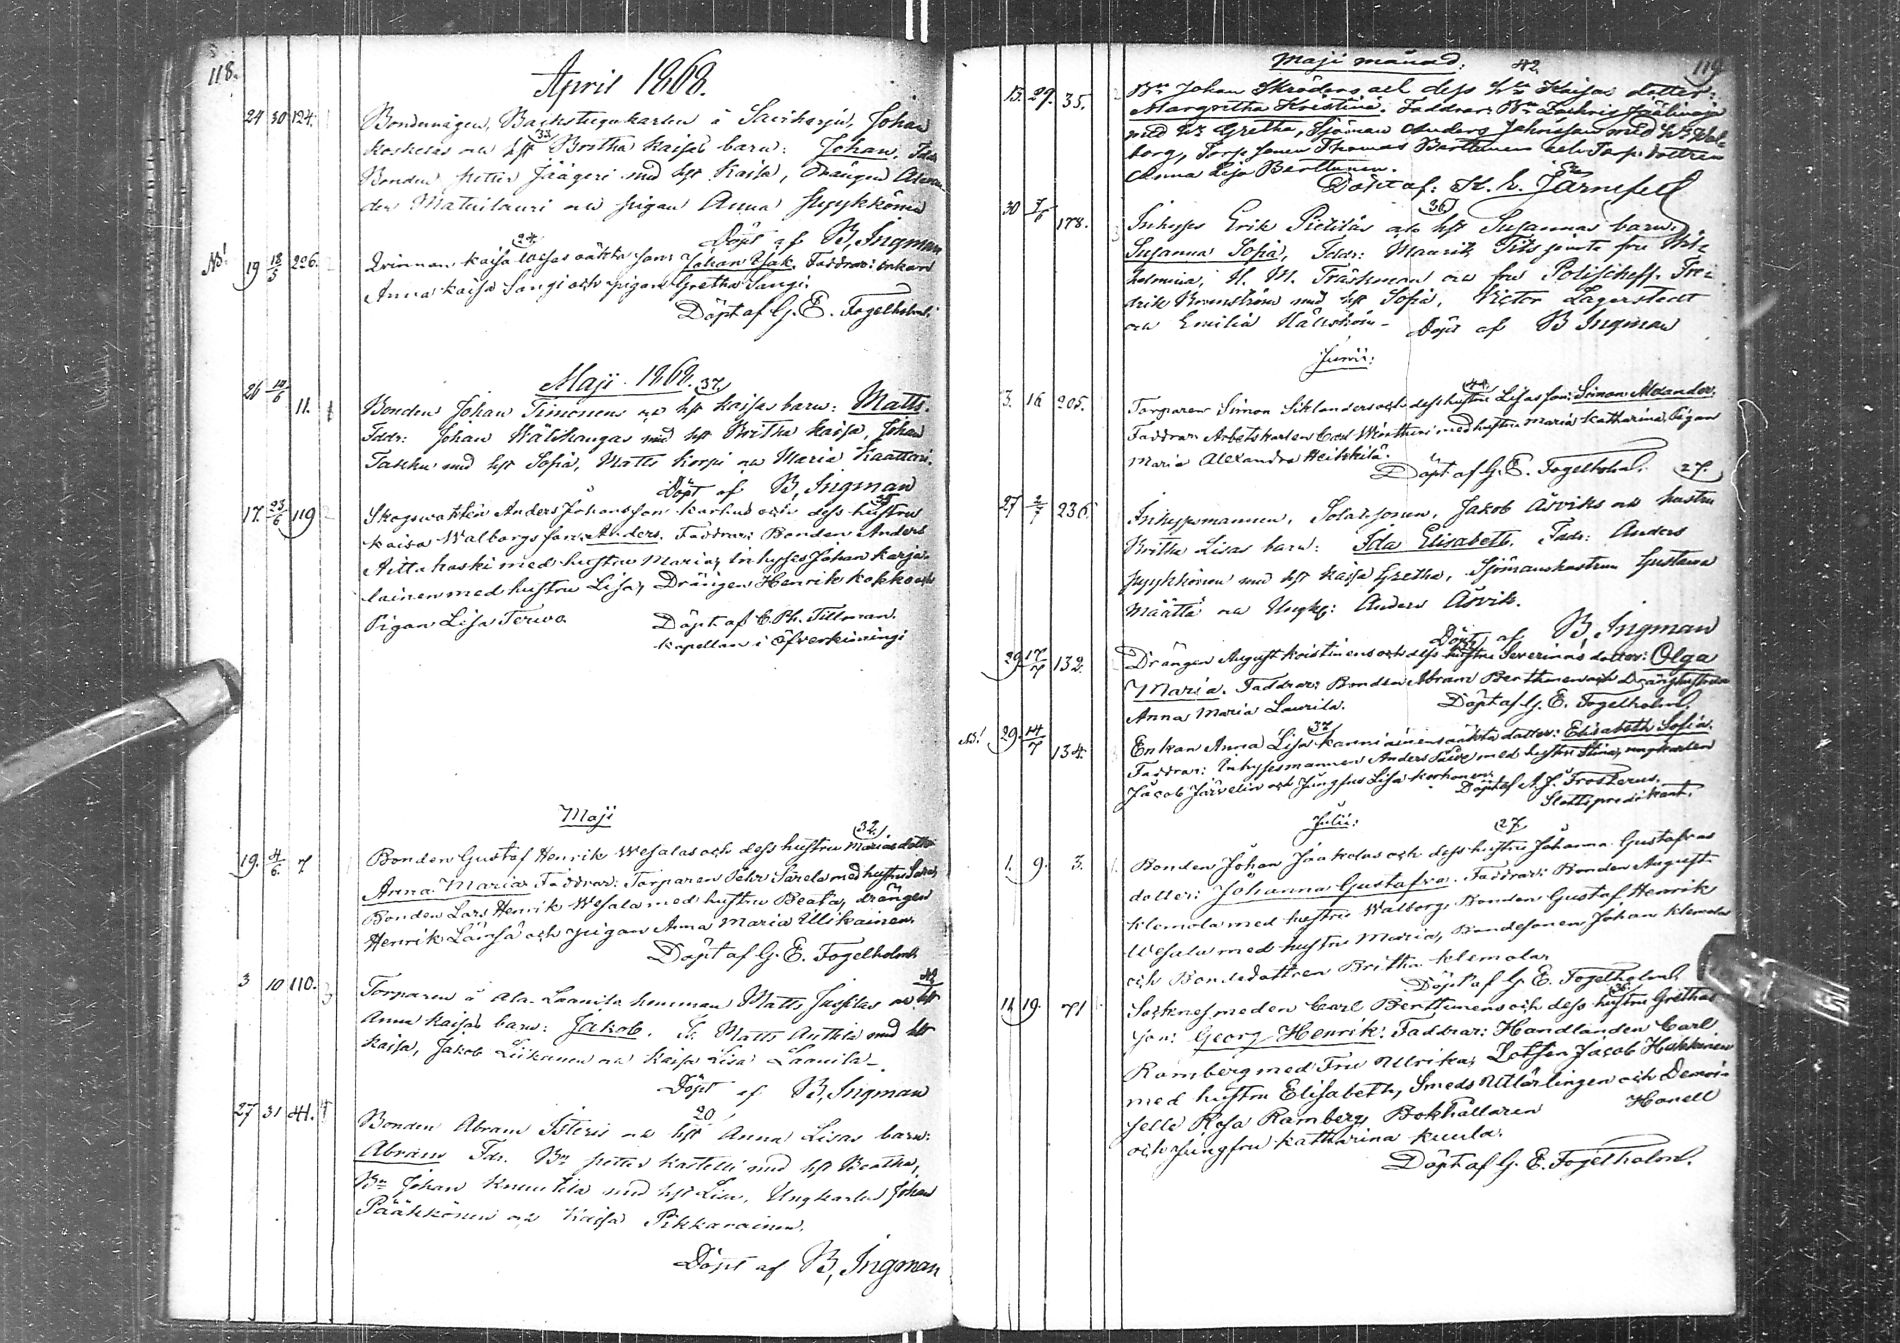 118.
April 1868.
24 30 124. Bondemågen, Backstugukarlen å Saviharju, Johan
Koskelas och hst 33 Britha Kaisas barn: Johan. Fadr.
Bonden Petter Jäägeri med hst Kaisa, Drängen Alexan-
der Matinlauri och pigan Anna Pyykkönen
Döpt af B, Ingman
NB! 19 18/5 226. Qvinnan Kaisa 24 oäkta son: Johan Isak. Faddrar: enkan
Anna Kaisa Sangi och pigan Gretha Sangi.
Döpt af G. E. Fogelholm.
Maji 1868. 37
26 14/6 11. 1 Bonden Johan Timonens och hst Kaisas barn: Matts.
Fddr: Johan Wälikangas med hst Britha Kaisa, Johan
Taskku med hst Sofia, Matts Korpi och Maria Kaattari.
Döpt af B, Ingman
17. 23/6 119 2 Skogswaktan Anders Johansson Karhus och dess hustru 35
Kaisa Walborgs son: Anders. Faddrar: Bonden Anders
Aittakoski med hustru Maria, Inhyses Johan Karja-
lainen med hustru Lisa, Drängen Henrik Kokko och
Pigan Lisa Terwo. Döpt af C. Ph. Tillman.
Kapellan i Öfverkiimingi
Maji
19. 4/6 7 Bonden Gustaf Henrik Wesalas och dess hustru 32. Marias dotter
Anna Maria. Faddrar: Torparen Pehr Särelä med hustru Sara,
Bonden Lars Henrik Wesala med hustru Beata, drängen
Henrik Länsä och pigan Anna Maria Ullikainen.
Döpt af G. E. Fogelholm
3 10 110. 3 Torparen å Ala-Laanila hemman Matts Jussilas och hst 42
Anna Kaisas barn: Jakob. F. Matts Anttila med hst
Kaisa, Jakob Liikanen och Kaisa Lisa Laanila.
Döpt af B, Ingman
27 31 41. 4 Bonden Abram Sisteris och hst 20 Anna Lisas barn:
Abram Fdr. Bn Petter Kastelli med hst Beatha,
Bn Johan Knuutila med hst Lisa, Ungkarlen Johan
Pääkkönen och Kaisa Pikkarainen.
Döpt af B, Ingman
Maji månad. 42. 119
13. 29. 35. Bn Johan Skröders och dess hu Kaisas dotter:
Margretha Kristina. Faddrar: Bn Ludvig
med hu Gretha, Sjöman Anders Johnsson med hu Wal-
borg, Torp. sonen Thomas Berttunen och Torp. dottren
Anna Lisa Berttunen.
Döpt af: K. E. Järnefelt
30 7/6 178. 3 Inhyses Erik Pietiläs och hst 36 Susannas barn
Susanna Sofia, Fddr: Maurits fru Wil-
helmina, H. M. Träskman och fru Polischeff. Fre-
drik med hst Sofia, Victor Lagerstedt
och Emilia Hällström - Döpt af B Ingman
Junii:
3. 16 205. Torparen Simon Sihlanders och dess hustru 44. Lisas son: Simon Alexander.
Faddrar: Arbetskarlen Carl Wörthen med hustru Maria Katharina, Pigan
Maria Alexandra Heikkilä.
Döpt af G. E. Fogelholm. 27.
27 2/7 236. Inhysmannen, Solatsonen, Jakob Åsviks och hustru
Britha Lisas barn: Ida Elisabeth. Fadr: Anders
Pyykkönen med hst Kaisa Gretha, Sjömanshustrun Gustava
Määttä och Ungkf: Anders Åsvik.
Döpt af B, Ingman
29 17/7 132. Drängen August Koistinens och dess hustru Severinas dotter: Olga
Maria. Faddrar: Bonden Abram Berthunen och Dränghustrun
Anna Maria Laurila. Döpt af G. E. Fogelholm.
NB! 29. 14/7 134. Enkan Anna Lisa 37 Kanniainens oäkta dotter: Elisabeth Sofia.
Faddrar: Inhysesmannen Anders med hustru Stina, ungkarlen
Jacob Järvelin och Jungfru Lisa Korhonen. Döpt af A. J. Frosterus.
Slottspredikant.
Julii:
1. 9. 3. 1 Bonden Johan Jaakolas och dess hustru 27 Johanna Gustafvas
dotter: Johanna Gustafva. Faddrar: Bonden August
Klemola med hustru Walborg, Bonden Gustaf Henrik
Wesala med hustru Maria, Bondesonen Johan Klemola
och Bondedottren Britha Klemola.
Döpt af G. E. Fogelholm
11. 19. 71 Sockne smeden Carl Berttunens och dess hustru 36. Grethas
son: Georg Henrik. Faddrar: Handlanden Carl
Ramberg med Fru Ulrika, Lotsen Jacob Hakkinen
med hustru Elisabeth, Smeds Utlärlingen och Demoi-
selle Rosa Ramberg, Bokhållaren Hanell
och Jungfru Katharina Kuula.
Döpt af G. E. Fogelholm.